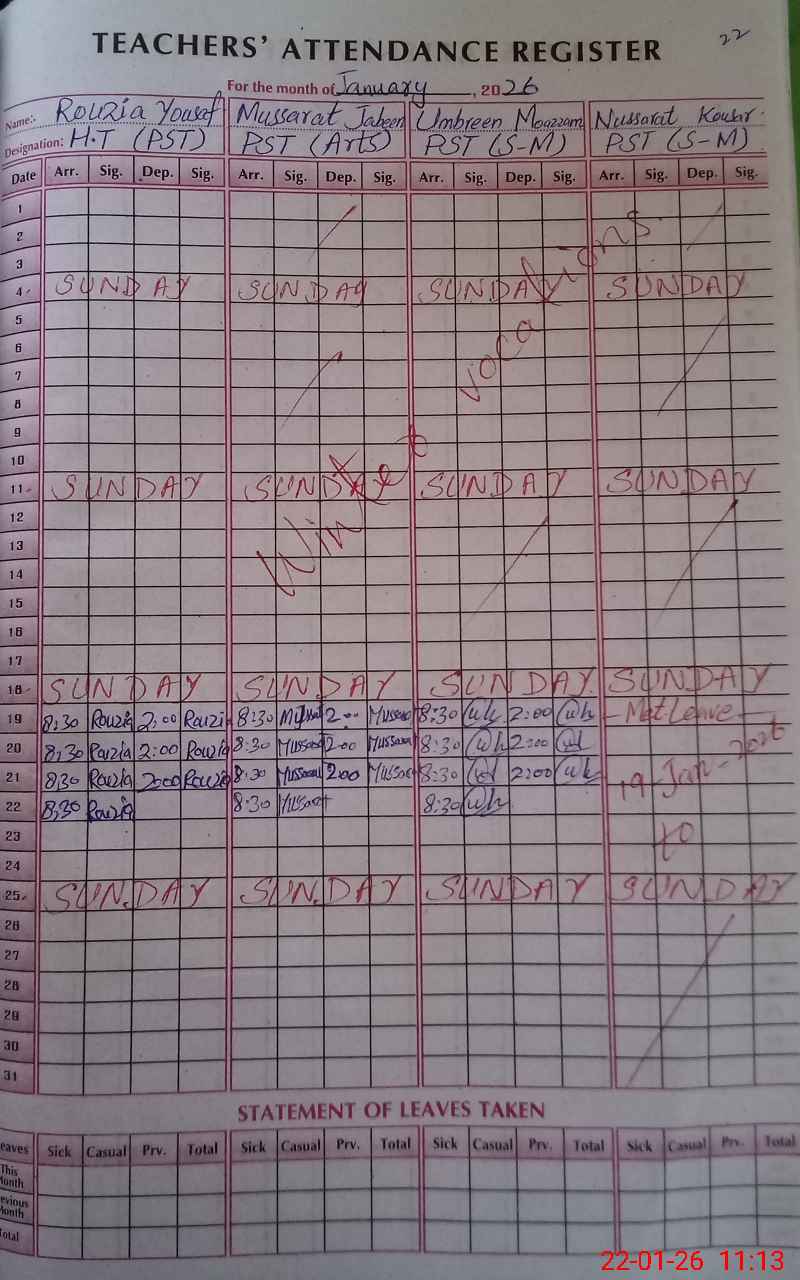 22
TEACHERS' ATTENDANCE REGISTER
For the month of January, 2026
Name:- Rouzia Yousaf Mussarat Jabeen Umbreen Moazzam Nussarat Kousar
Designation: H.T (PST) PST (Arts) PST (S-M) PST (S-M)
Date Arr. Sig. Dep. Sig. Arr. Sig. Dep. Sig. Arr. Sig. Dep. Sig. Arr. Sig. Dep. Sig.
1
2
3
4 SUNDAY SUNDAY SUNDAY SUNDAY
5
6
7
8
9
10
11 SUNDAY SUNDAY SUNDAY SUNDAY
12
13
14
15
16
17
Winter vocations
18 SUNDAY SUNDAY SUNDAY SUNDAY
19 8:30 Rouzia 2:00 Rouzi 8:30 2:00 8:30 2:00 Mat Leave
20 8:30 Rouzia 2:00 Rouzia 8:30 2:00 8:30 2:00
21 8:30 Rouzia 2:00 Rouzia 8:30 2:00 8:30 2:00 19-Jan-2026
22 8:30 Rouzia 8:30 8:30
23 to
24
25 SUNDAY SUNDAY SUNDAY SUNDAY
26
27
28
29
30
31
STATEMENT OF LEAVES TAKEN
eaves Sick Casual Prv. Total Sick Casual Prv. Total Sick Casual Prv. Total Sick Casual Prv. Total
This
Month
evious
Month
otal
22-01-26 11:13